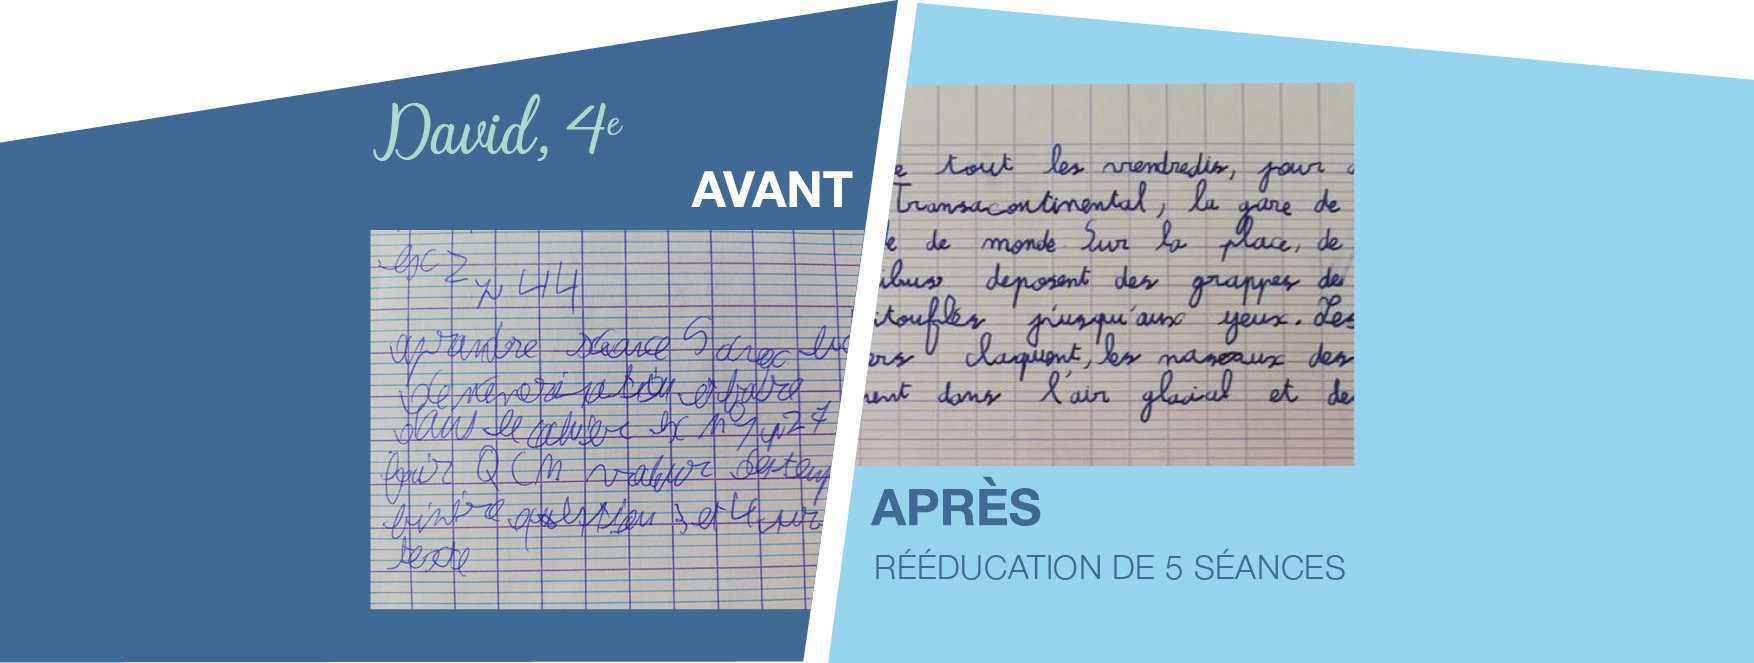 David, 4e
AVANT
n 44
aprandre seance 5 avec
dans le cahier ex n°9 p27
QCM valeur
question 3 et 4 sur
texte
e tout les vendredis, jour
Transacontinental, la gare de
e de monde Sur la place, de
ibus deposent des grappes de
itouflés jusqu'aux yeux. Les
ers claquent, les naseaux des
ent dans l'air glacial et de
APRÈS
RÉÉDUCATION DE 5 SÉANCES